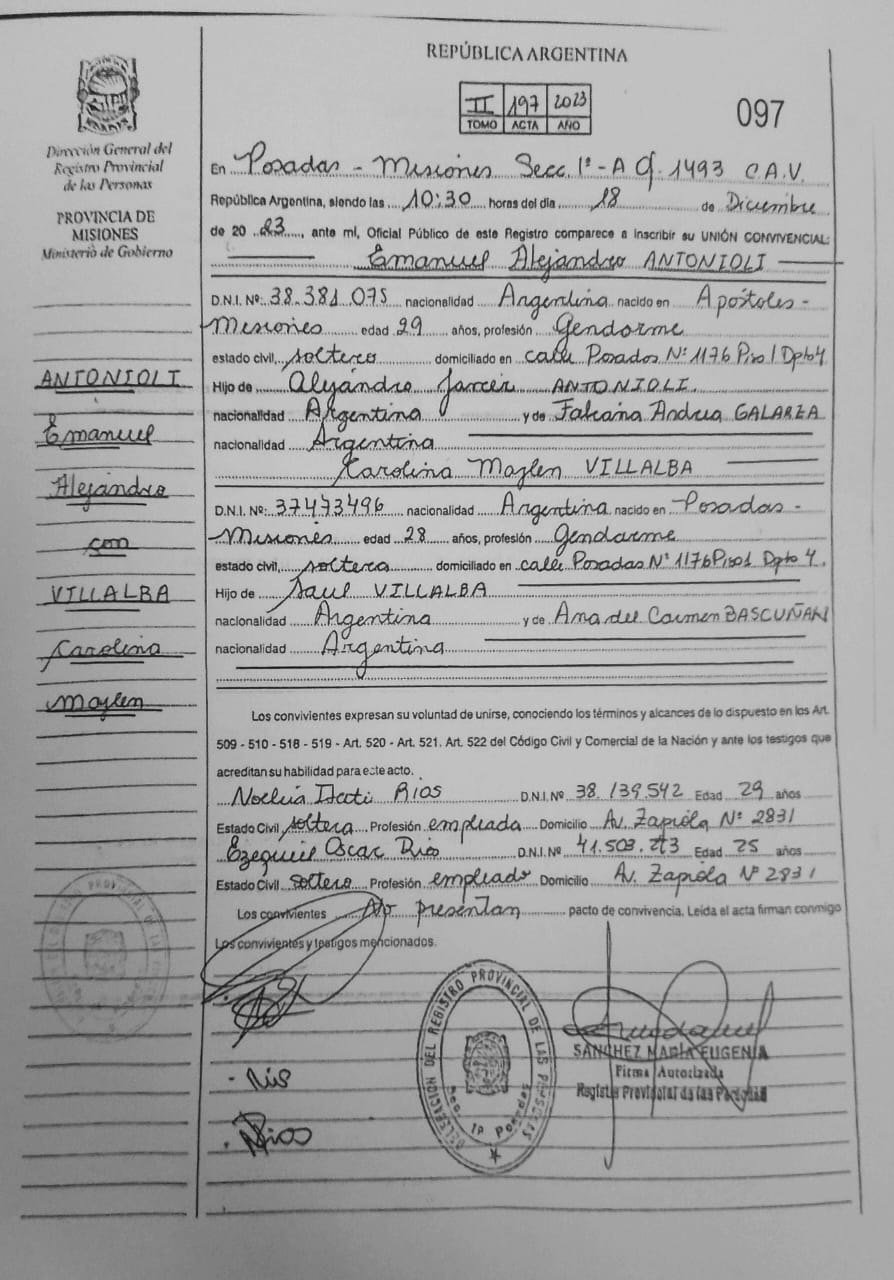 REPÚBLICA ARGENTINA
II 197 2023
TOMO ACTA AÑO
097
Dirección General del
Registro Provincial
de las Personas
PROVINCIA DE
MISIONES
Ministerio de Gobierno
En Posadas - Misiones Secc. 1ª - A Of. 1493 C.A.V.
República Argentina, siendo las 10:30 horas del día 18 de Diciembre
de 20 23, ante mí, Oficial Público de este Registro comparece a inscribir su UNIÓN CONVIVENCIAL:
Emanuel Alejandro ANTONIOLI
D.N.I. Nº: 38.381.075 nacionalidad Argentina nacido en Apóstoles -
Misiones edad 29 años, profesión Gendarme
estado civil, soltero domiciliado en calle Posadas Nº 1176 Piso 1 Dpto 4
Hijo de Alejandro Javier ANTONIOLI.
nacionalidad Argentina y de Fabiana Andrea GALARZA
nacionalidad Argentina
Karolina Maylen VILLALBA
D.N.I. Nº: 37473496 nacionalidad Argentina nacido en Posadas -
Misiones edad 28 años, profesión Gendarme
estado civil, soltera domiciliado en calle Posadas Nº 1176 Piso 1 Dpto 4.
Hijo de Saul VILLALBA
nacionalidad Argentina y de Ana del Carmen BASCUÑAN
nacionalidad Argentina
ANTONIOLI
Emanuel
Alejandro
con
VILLALBA
Karolina
Maylen
Los convivientes expresan su voluntad de unirse, conociendo los términos y alcances de lo dispuesto en los Art.
509 - 510 - 518 - 519 - Art. 520 - Art. 521. Art. 522 del Código Civil y Comercial de la Nación y ante los testigos que
acreditan su habilidad para este acto.
Noelia Itatí RIOS D.N.I. Nº 38.139.542 Edad 29 años
Estado Civil soltera Profesión empleada Domicilio Av. Zapiola Nº 2831
Ezequiel Oscar Rios D.N.I. Nº 41.503.273 Edad 25 años
Estado Civil soltero Profesión empleado Domicilio Av. Zapiola Nº 2831
Los convivientes No presentan pacto de convivencia. Leída el acta firman conmigo
Los convivientes y testigos mencionados.
DELEGACION DEL REGISTRO PROVINCIAL DE LAS PERSONAS
Sec. 1ª Posadas
SANCHEZ MARÍA EUGENIA
Firma Autorizada
Registro Provincial de las Personas
Rios